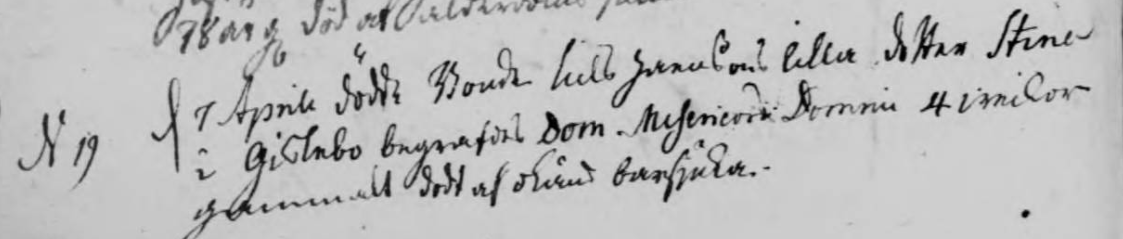 78 ar g död af Ålderdoms
N 19 d 7 Aprili dödde Bonde Nils Hanssons lilla dotter Stina
i Gislebo begrafdes Dom. Misericord: Domini 4 weckor
gammalt dödt af okänd barnsjuka.